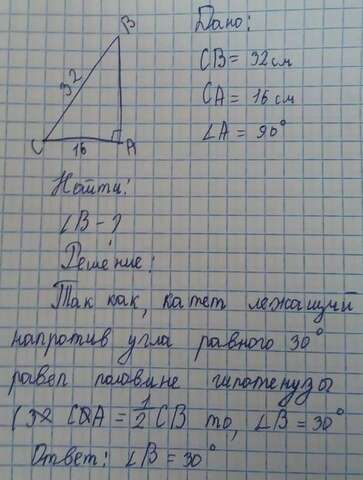 Дано:
B
CB = 32 см
32
CA = 16 см
∠A = 90°
C 16 A
Найти:
∠B - ?
Решение:
Так как, катет лежащий
напротив угла равного 30°
равен половине гипотенузы
CA = 1/2 CB то, ∠B = 30°
Ответ: ∠B = 30°